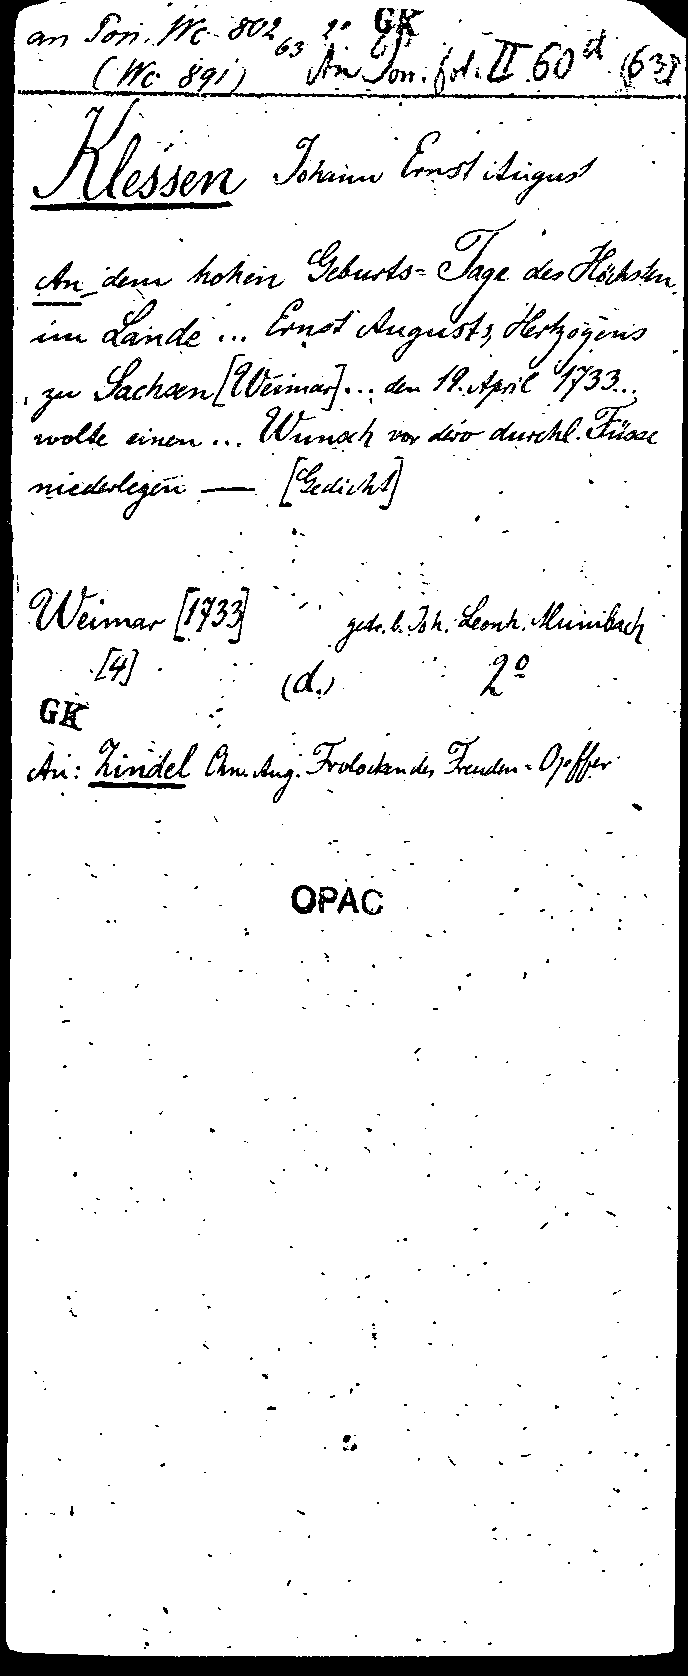 an Pon. Wc 802 63 2° GK
(Wc 891) An Pon. fol. II 60d (63)
Klessen Johann Ernst August
An dem hohen Geburts-Tage des Höchsten
im Lande ... Ernst Augusts, Hertzogens
zu Sachsen [Weimar] ... den 19. April 1733...
wolte einen ... Wunsch vor dero durchl. Füsse
niederlegen — [Gedicht]
Weimar [1733] gedr. b. Joh. Leonh. Mumbach
[4] (d.) 2°
GK
An: Zindel Chn. Aug. Frolockendes Freuden-Opffer
OPAC